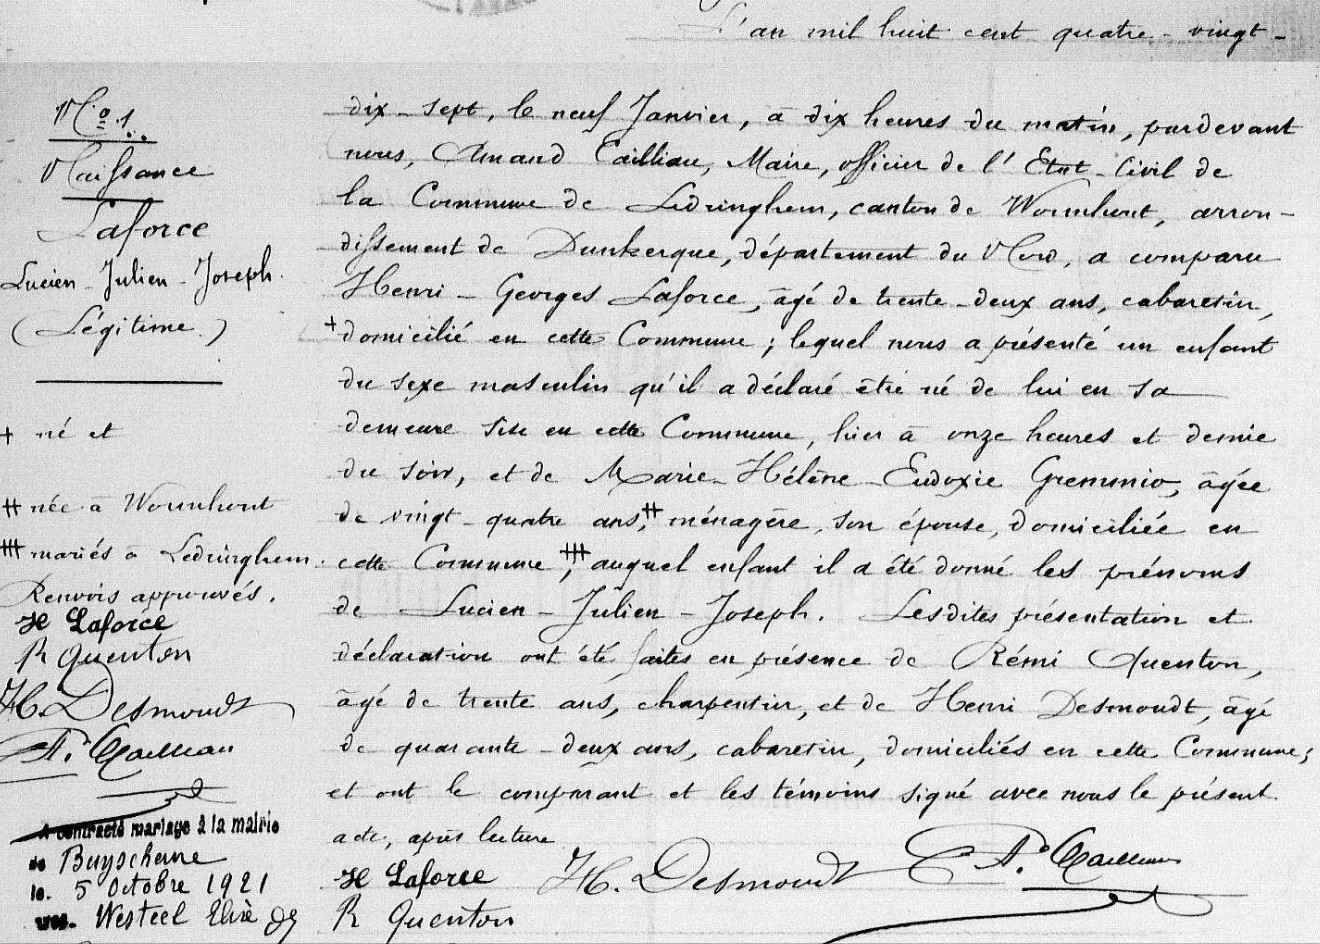 L'an mil huit cent quatre-vingt-
dix-sept, le neuf Janvier, à dix heures du matin, pardevant
nous, Amand Cailliau, Maire, officier de l'Etat-Civil de
la Commune de Ledringhem, canton de Wormhout, arron-
dissement de Dunkerque, département du Nord, a comparu
Henri-Georges Laforce, âgé de trente-deux ans, cabaretier,
+ domicilié en cette Commune; lequel nous a présenté un enfant
du sexe masculin qu'il a déclaré être né de lui en sa
demeure sise en cette Commune, hier à onze heures et demie
du soir, et de Marie-Hélène-Eudoxie Gremmio, âgée
de vingt-quatre ans, ⧺ ménagère, son épouse, domiciliée en
cette Commune ⧻, auquel enfant il a été donné les prénoms
de Lucien-Julien-Joseph. Lesdites présentation et
déclaration ont été faites en présence de Rémi Quenton,
âgé de trente ans, charpentier, et de Henri Desmoudt, âgé
de quarante-deux ans, cabaretier, domiciliés en cette Commune;
et ont le comparant et les témoins signé avec nous le présent
acte, après lecture
H Laforce H. Desmoudt A. Cailliau
R Quenton
No 1.
Naissance
Laforce
Lucien-Julien-Joseph.
(Légitime.)
+ né et
⧺ née à Wormhout
⧻ mariés à Ledringhem.
Renvois approuvés.
H Laforce
R Quenton
H. Desmoudt
A. Cailliau
A contracté mariage à la mairie
de Buysscheure
le. 5 Octobre 1921
avec. Westeel Elise